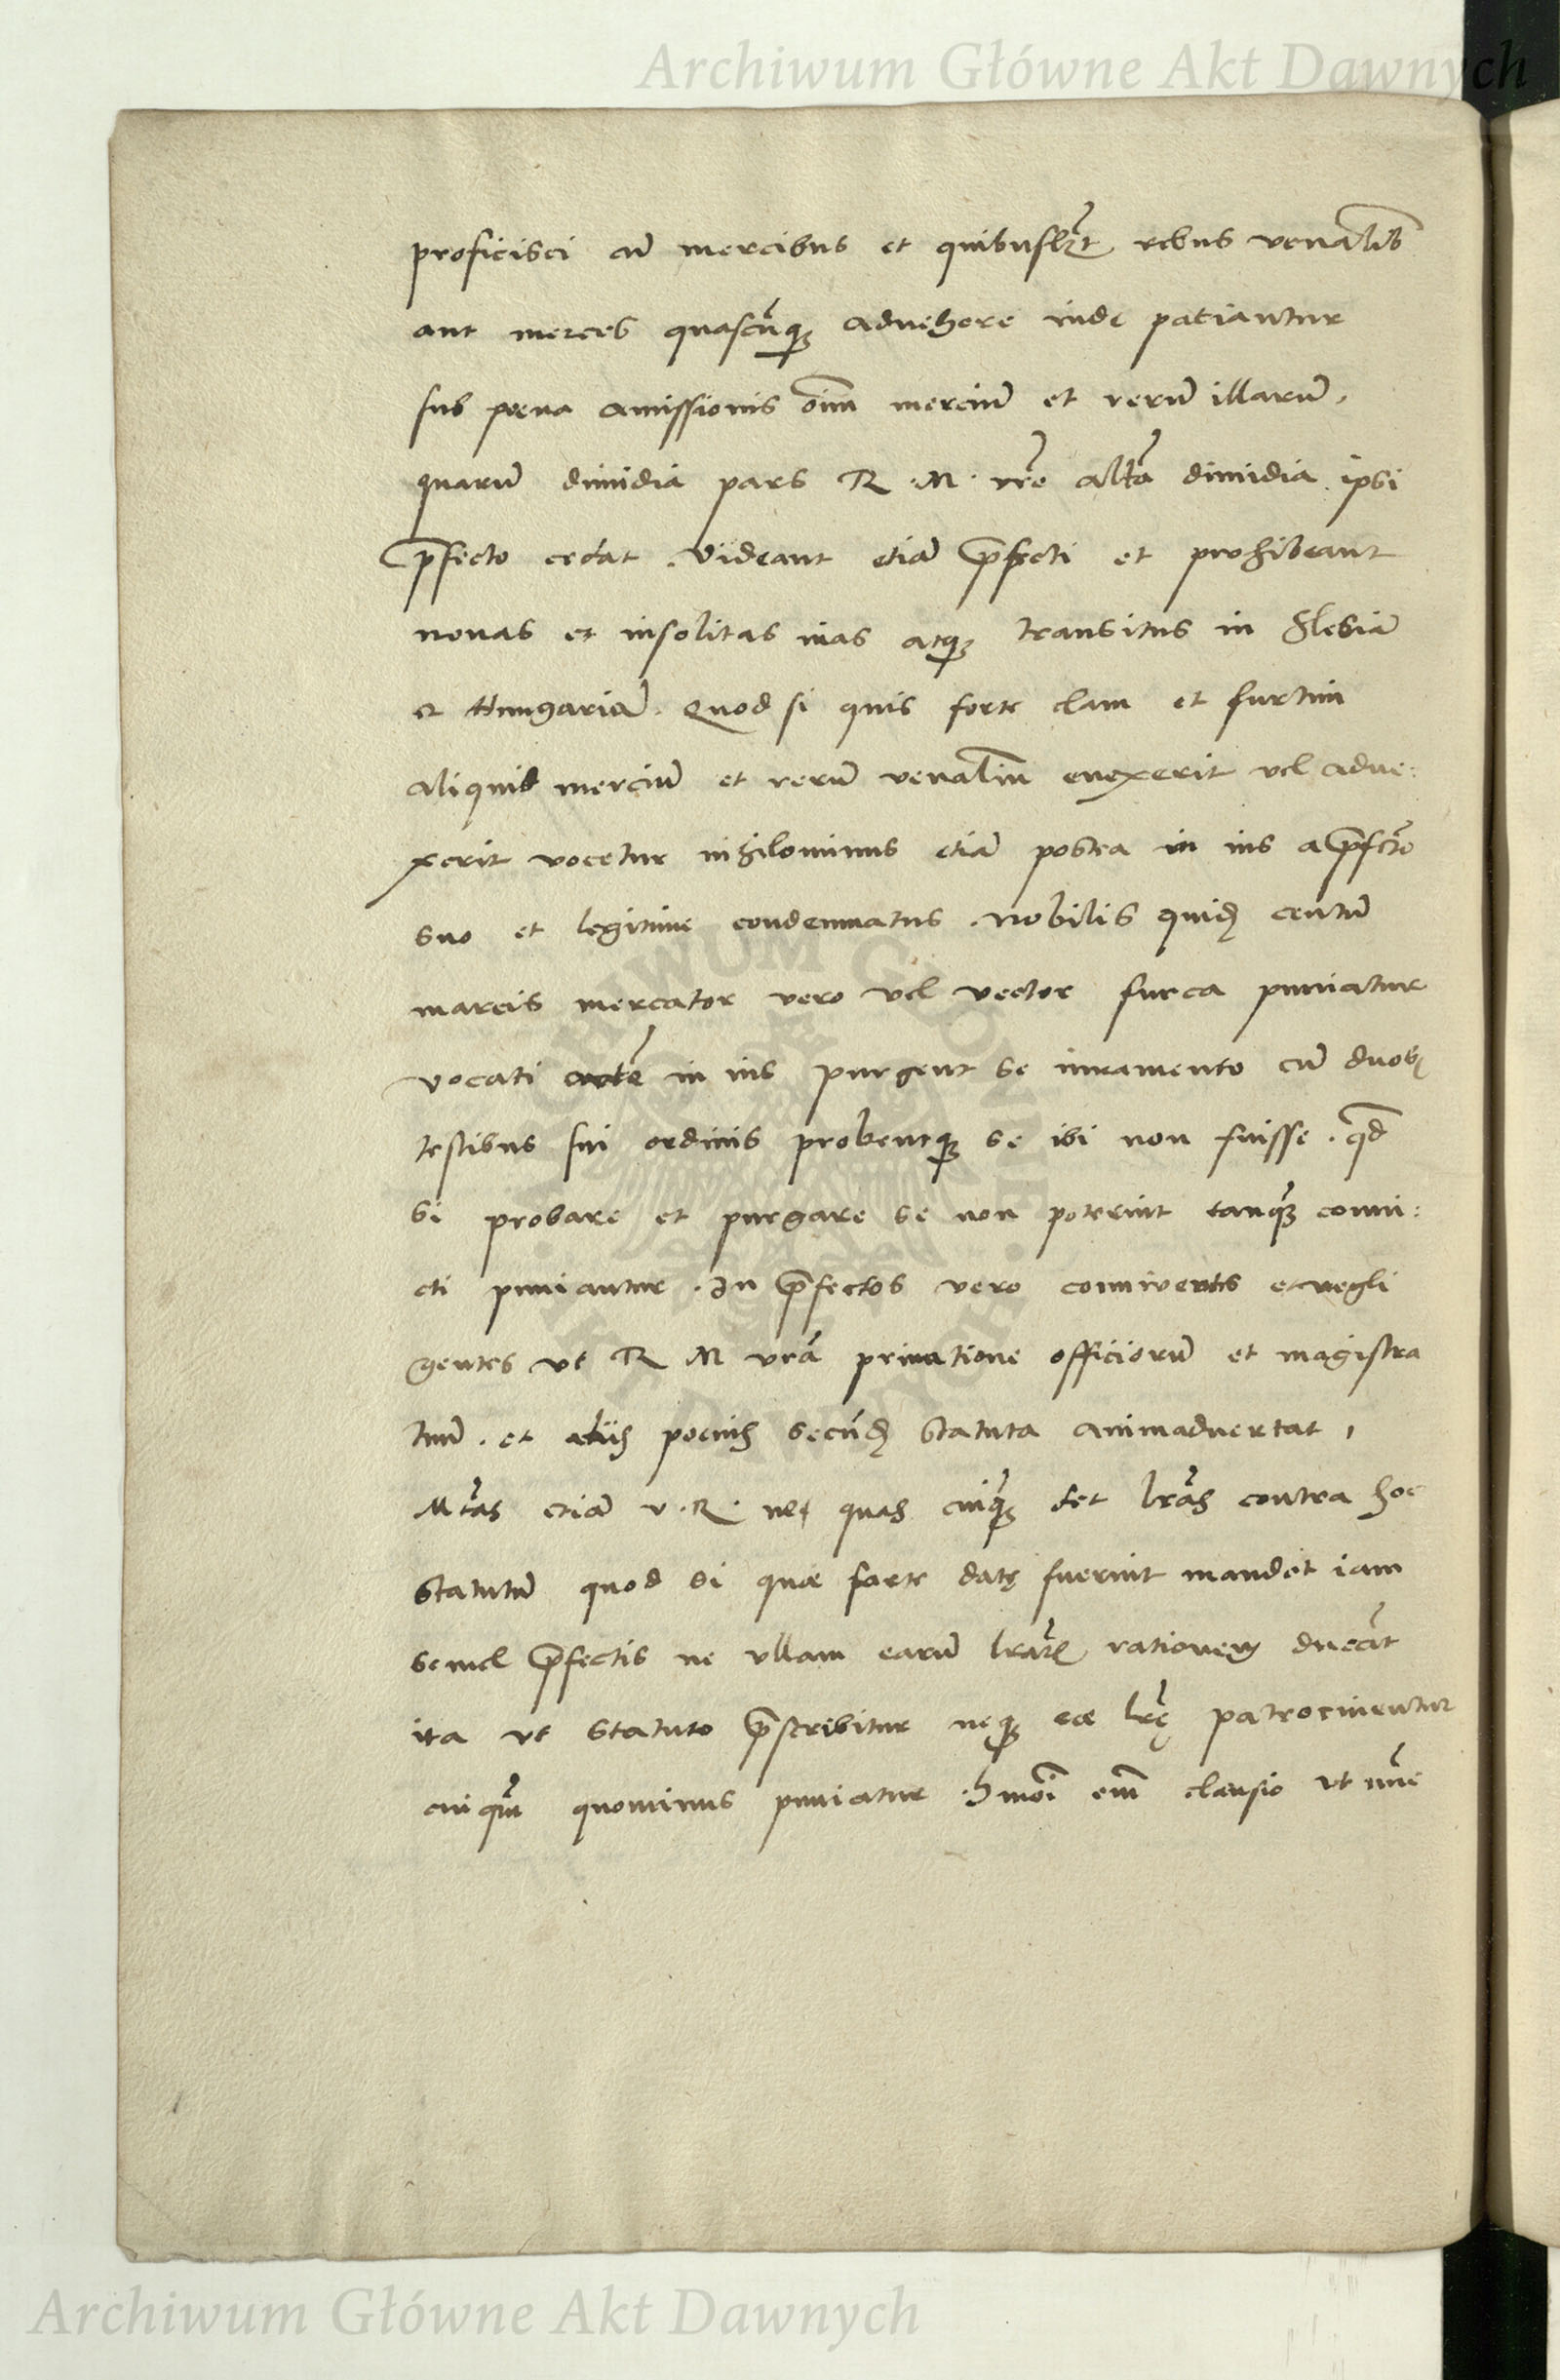 Archiwum Główne Akt Dawnych
proficisci cũ mercibus et quibuslꝫt rebus venalib
aut merces quascũqꝫ aduehere inde patiantur
sub poena amissionis oĩm merciũ et rerũ illarũ,
quarũ dimidia pars R . M . vrẽ altã dimidia ipsi
p̄fecto cedat . Videant etiã p̄fecti et prohibeant
nouas et insolitas uias atqꝫ transitus in Slesiã
et Hungariã . Quod si quis forte clam et furtim
aliquid merciũ et rerũ venaliũ euexerit vel adue:
xerit vocetur nihilominus etiã postea in ius a p̄fcto
suo et legitime condemnatus . Nobilis quidẽ centũ
marcis mercator vero vel vector furca puniatur
vocati autẽ in ius purgent se iuramento cũ duobꝫ
testibus sui ordinis probentqꝫ se ibi non fuisse . qd̃
si probare et purgare se non poterint tanqꝫ conui:
cti puniantur . In p̄fectos vero conniventes et negli
gentes vt R M vrã priuatione officiorũ et magistra
tuũ . et aliis poenis secũdũ statuta animaduertat,
Mtãs etiã v . R . ne quas cuiqꝫ det lrãs contra hoc
statutũ quod si quæ forte datę fuerint mandet iam
semel p̄fectis ne vllam earũ lrãrꝫ rationem ducãt
ita vt statuto p̄scribitur neqꝫ eæ lrę̃ patrocinentur
cuiqũ quominus puniatur . Hmõi em̃ clausio vt nũc
ARCHIWUM GŁÓWNE AKT DAWNYCH
Archiwum Główne Akt Dawnych